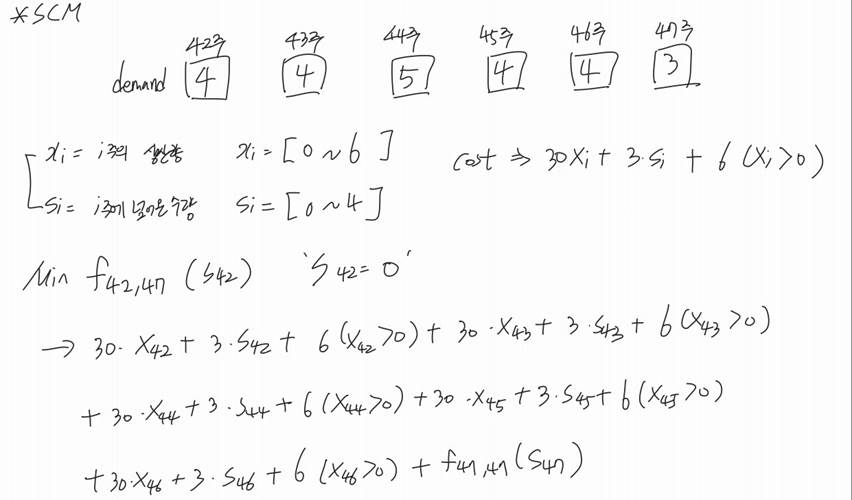 *SCM
42주 43주 44주 45주 46주 47주
demand 4 4 5 4 4 3
xi = i주의 생산량 xi = [0 ~ 6] cost ⇒ 30xi + 3·si + 6 (xi>0)
si = i주에 넘어온 수량 si = [0 ~ 4]
Min f42,47 (S42) 'S42 = 0'
→ 30·X42 + 3·S42 + 6(X42>0) + 30·X43 + 3·S43 + 6(X43>0)
+ 30·X44 + 3·S44 + 6(X44>0) + 30·X45 + 3·S45 + 6(X45>0)
+ 30·X46 + 3·S46 + 6 (X46>0) + f47,47(S47)